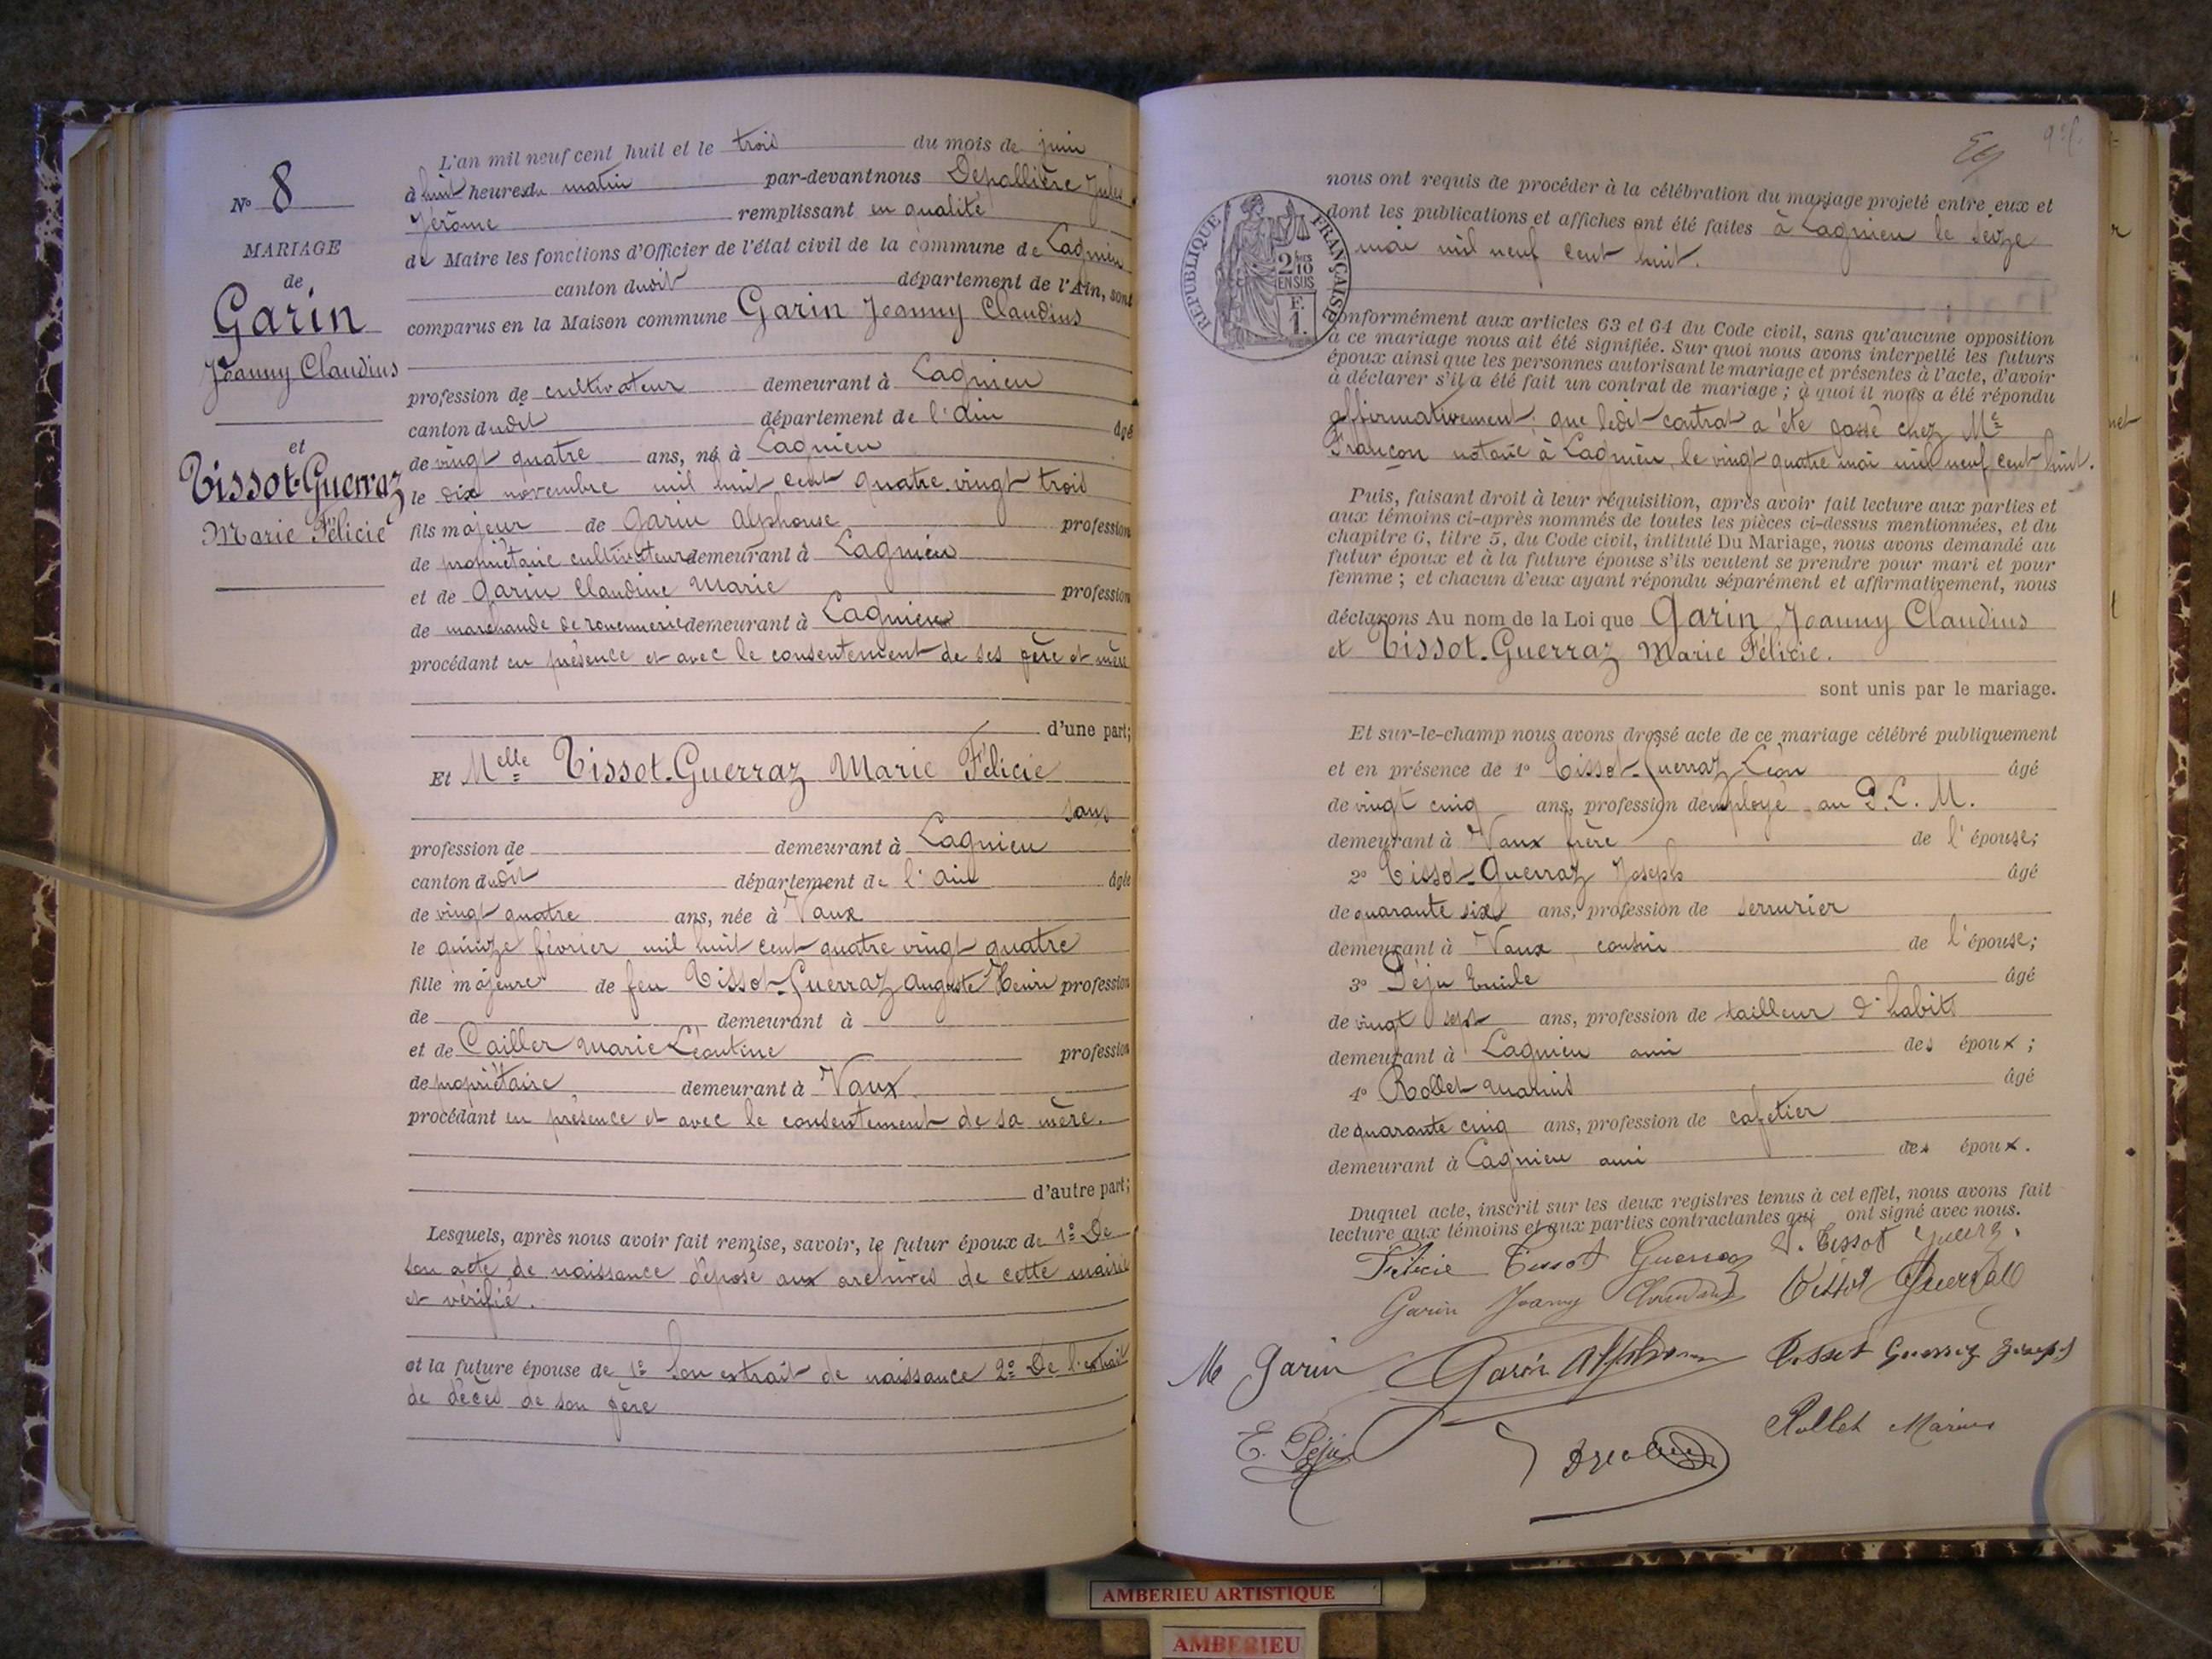 N° 8
MARIAGE
de
Garin
Joanny Claudius
et
Tissot-Guerraz
Marie Félicie
L'an mil neuf cent huit et le trois du mois de juin
à huit heures du matin par-devant nous Depallière Jules
Jérôme remplissant en qualité
de Maire les fonctions d'Officier de l'état civil de la commune de Lagnieu
canton dudit département de l'Ain, sont
comparus en la Maison commune Garin Joanny Claudius
profession de cultivateur demeurant à Lagnieu
canton dudit département de l'Ain âgé
de vingt quatre ans, né à Lagnieu
le dix novembre mil huit cent quatre-vingt trois
fils majeur de Garin Alphonse profession
de propriétaire cultivateur demeurant à Lagnieu
et de Garin Claudine Marie profession
de marchande de rouennerie demeurant à Lagnieu
procédant en présence et avec le consentement de ses père et mère
d'une part;
Et Melle Tissot-Guerraz Marie Félicie
sans
profession de demeurant à Lagnieu
canton dudit département de l'Ain âgée
de vingt quatre ans, née à Vaux
le quinze février mil huit cent quatre vingt quatre
fille majeure de feu Tissot-Guerraz Auguste Henri profession
de demeurant à
et de Cailler Marie Léontine profession
de propriétaire demeurant à Vaux
procédant en présence et avec le consentement de sa mère.
d'autre part;
Lesquels, après nous avoir fait remise, savoir, le futur époux de 1° De
son acte de naissance déposé aux archives de cette mairie
et vérifié.
et la future épouse de 1° Son extrait de naissance 2° De l'extrait
de décès de son père
RÉPUBLIQUE FRANÇAISE
2/10
EN SUS
F.
1.
nous ont requis de procéder à la célébration du mariage projeté entre eux et
dont les publications et affiches ont été faites à Lagnieu le seize
mai mil neuf cent huit.
conformément aux articles 63 et 64 du Code civil, sans qu'aucune opposition
à ce mariage nous ait été signifiée. Sur quoi nous avons interpellé les futurs
époux ainsi que les personnes autorisant le mariage et présentes à l'acte, d'avoir
à déclarer s'il a été fait un contrat de mariage ; à quoi il nous a été répondu
affirmativement; que ledit contrat a été passé chez Me
Françon notaire à Lagnieu, le vingt quatre mai mil neuf cent huit.
Puis, faisant droit à leur réquisition, après avoir fait lecture aux parties et
aux témoins ci-après nommés de toutes les pièces ci-dessus mentionnées, et du
chapitre 6, titre 5, du Code civil, intitulé Du Mariage, nous avons demandé au
futur époux et à la future épouse s'ils veulent se prendre pour mari et pour
femme ; et chacun d'eux ayant répondu séparément et affirmativement, nous
déclarons Au nom de la Loi que Garin Joanny Claudius
et Tissot-Guerraz Marie Félicie.
sont unis par le mariage.
Et sur-le-champ nous avons dressé acte de ce mariage célébré publiquement
et en présence de 1° Tissot-Guerraz Léon âgé
de vingt cinq ans, profession d'employé au P.L.M.
demeurant à Vaux frère de l'épouse;
2° Tissot-Guerraz Joseph âgé
de quarante six ans, profession de serrurier
demeurant à Vaux cousin de l'épouse;
3° Péju Emile âgé
de vingt sept ans, profession de tailleur d'habits
demeurant à Lagnieu ami des époux ;
4° Rollet Marius âgé
de quarante cinq ans, profession de cafetier
demeurant à Lagnieu ami des époux.
Duquel acte, inscrit sur les deux registres tenus à cet effet, nous avons fait
lecture aux témoins et aux parties contractantes qui ont signé avec nous.
Félicie Tissot Guerraz Tissot
Garin Joanny Claudius Tissot Guerraz
M Garin Garin Alphonse Tissot Guerraz Joseph
E. Péju Rollet Marius
AMBERIEU ARTISTIQUE
AMBERIEU